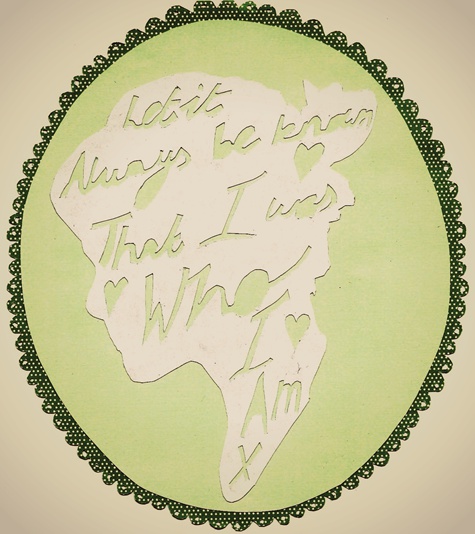 Let it
Always be known
That I was
Who
I
Am
X